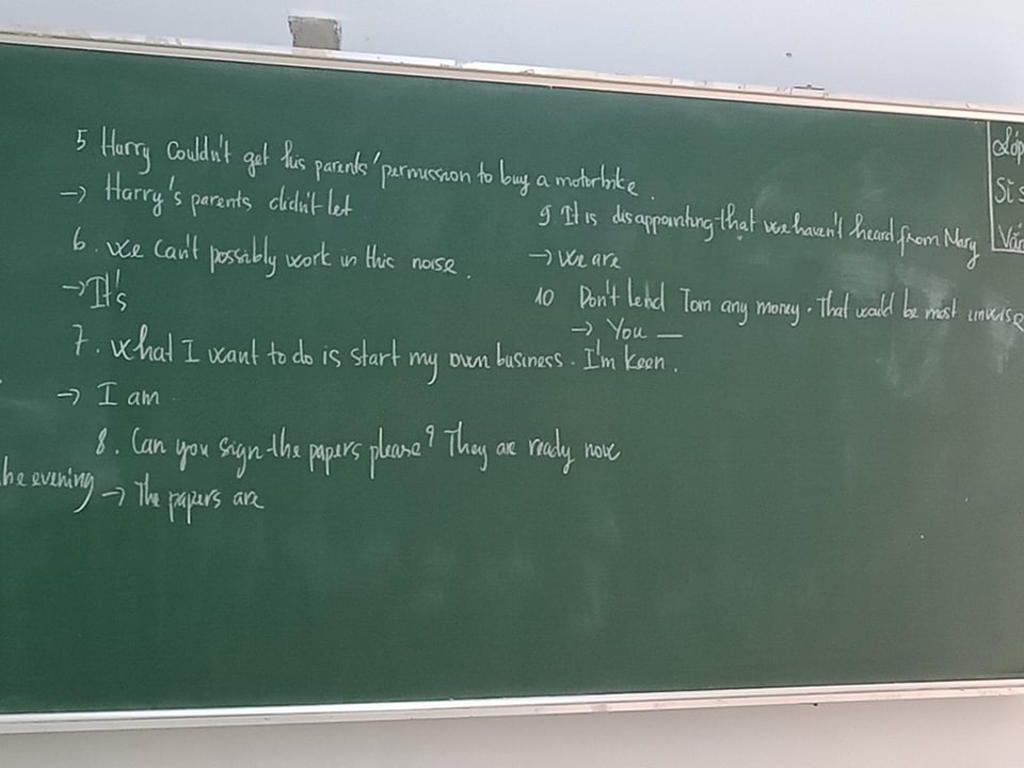 5 Harry couldn't get his parents' permission to buy a motorbike.
→ Harry's parents didn't let
6. we can't possibly work in this noise.
→ It's
7. what I want to do is start my own business. I'm keen.
→ I am
8. Can you sign the papers please? They are ready now
he evening
→ The papers are
9 It is disappointing that we haven't heard from Mary
→ we are
10 Don't lend Tom any money. That would be most unwise
→ You —
Lớp
Sĩ s
Vắn